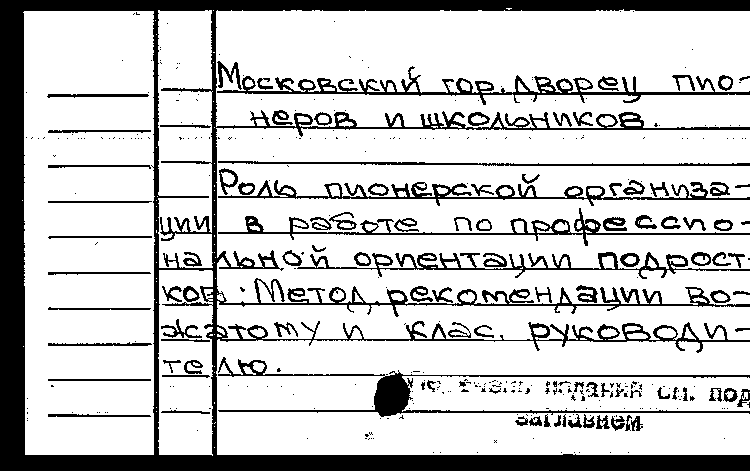 Московский гор. Дворец пио-
неров и школьников.
Роль пионерской организа-
ции в работе по профессио-
нальной ориентации подрост-
ков: Метод. рекомендации во-
жатому и клас. руководи-
телю.
издания см. под
заглавием